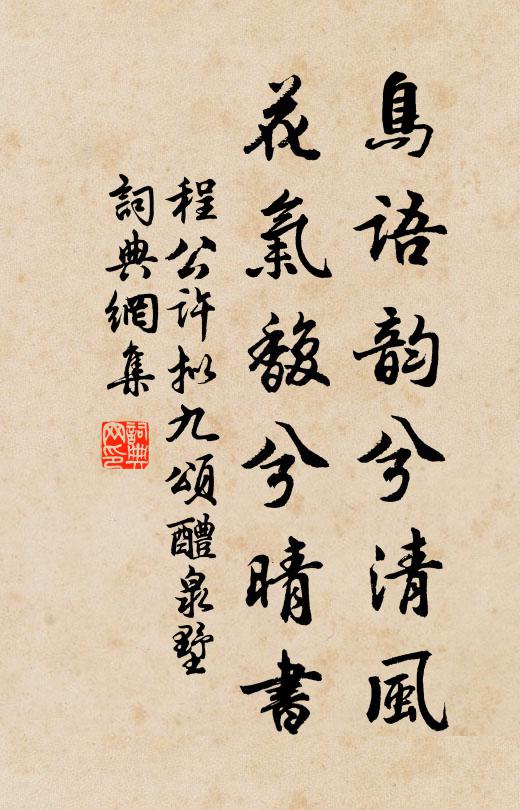 鳥語韵兮清風
花氣馥兮晴書
程公許拟九頌醴泉墅
詞典網集
詞典网印